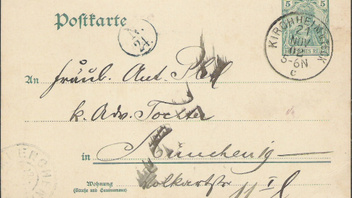 Postkarte
5
KIRCHHEIM
21
NOV
02
5-6N
c
21
An Fräul. Ant.
k. Adv. Tochter
in München 19
Wohnung
(Straße und Hausnummer)
Volkartstr
11 I